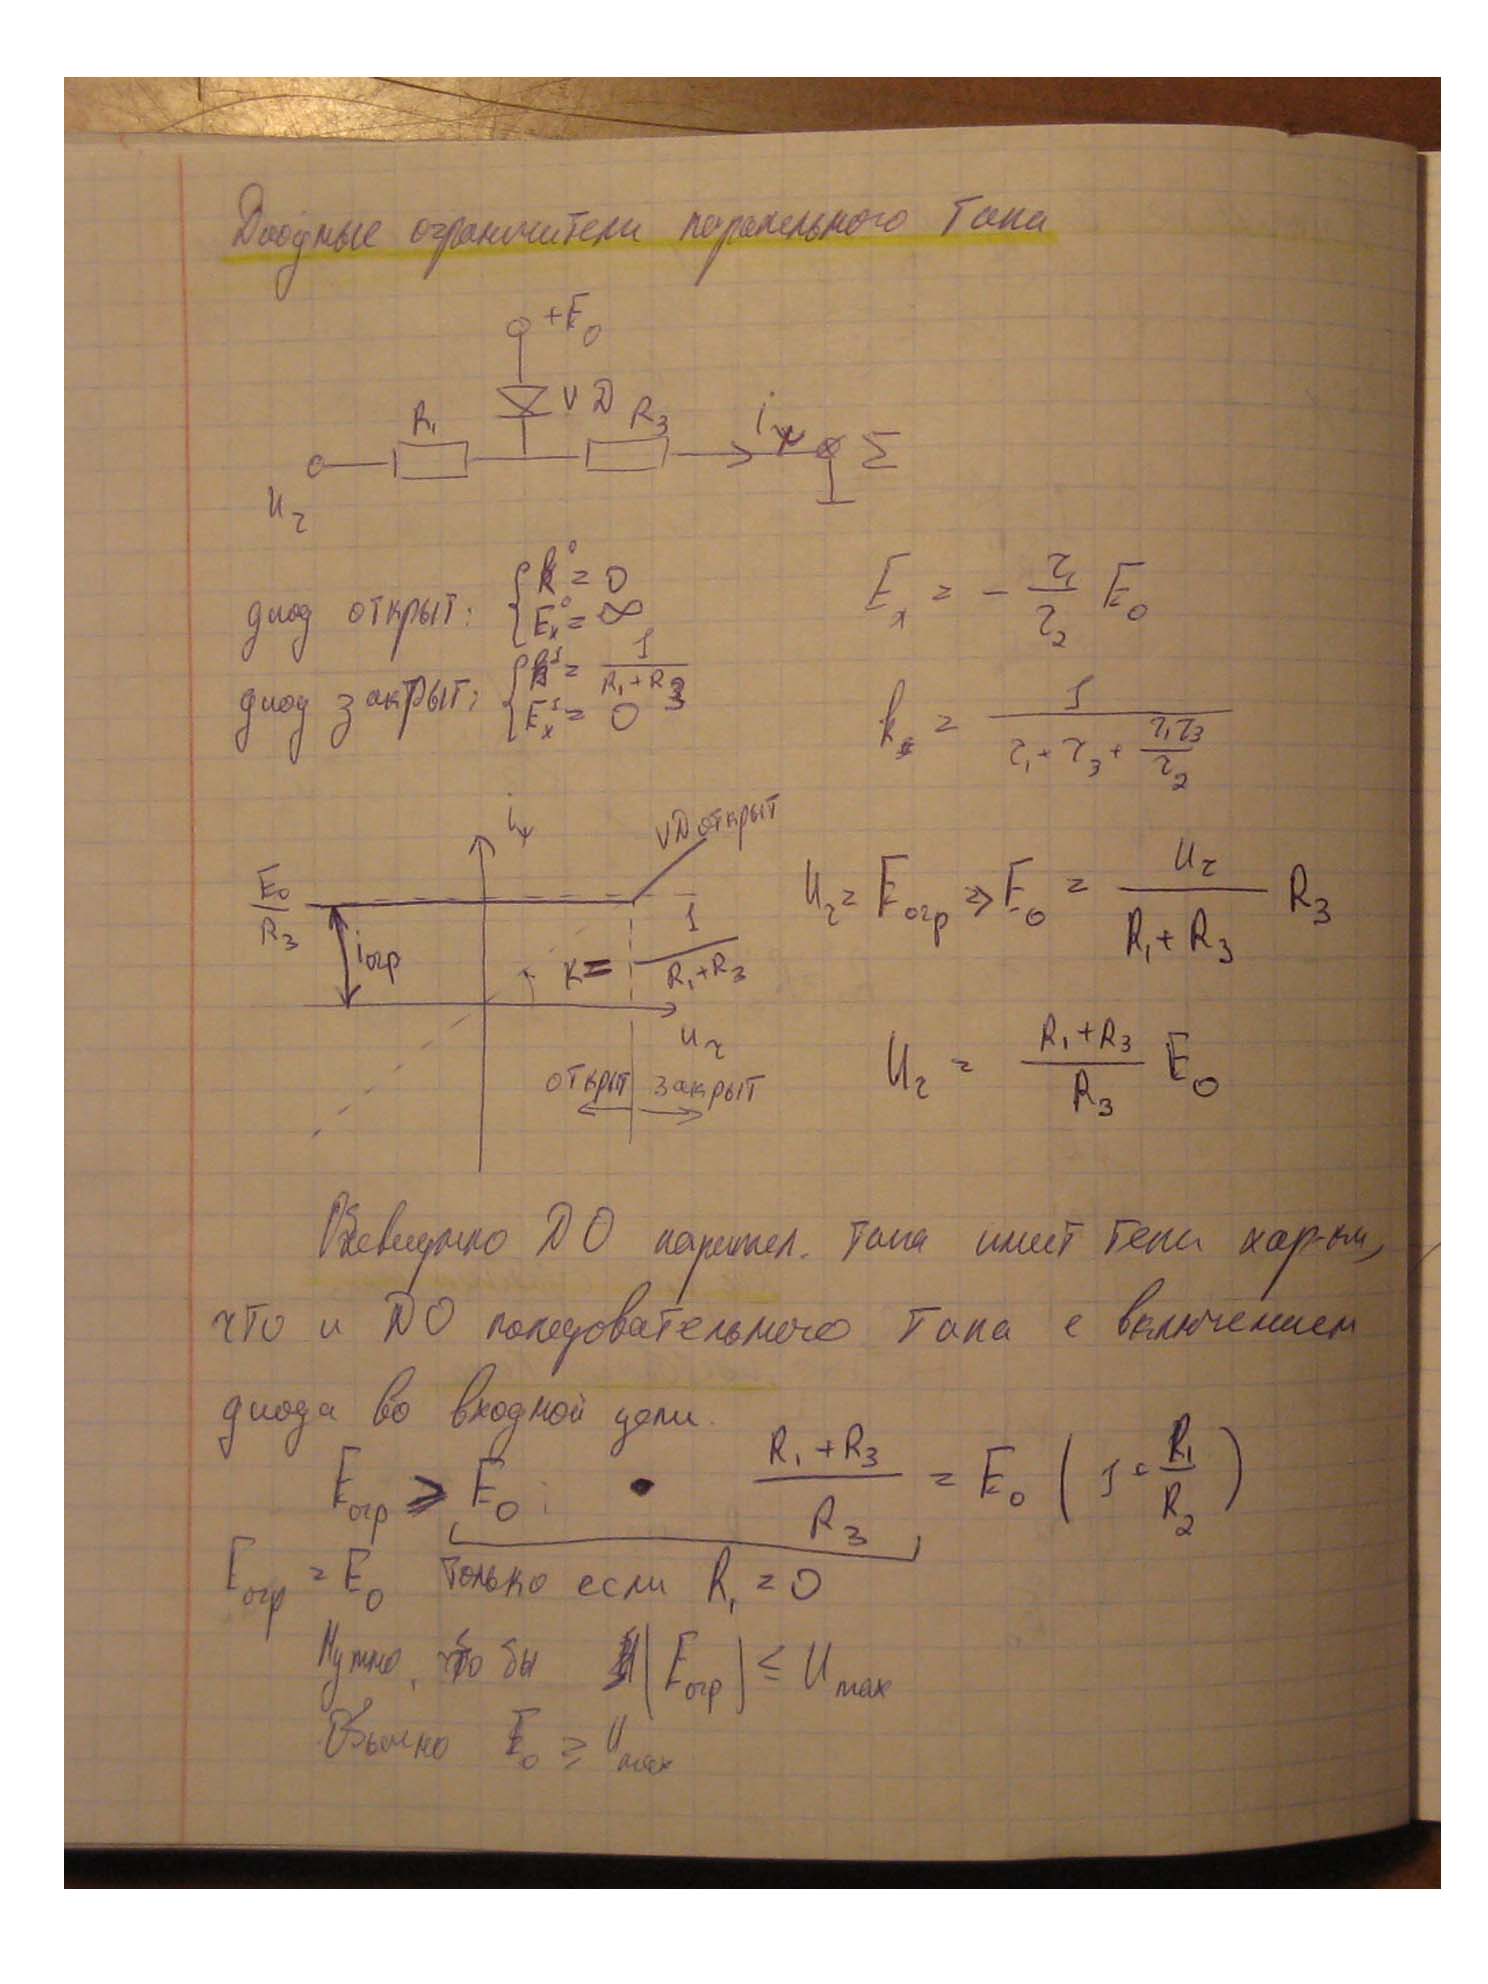 Диодные ограничители паралельного типа
+E₀
VD
R₁
R₃
iₓ
Σ
U₂
диод открыт: { k⁰ = 0
Eₓ⁰ = ∞
диод закрыт: { k¹ = 1/(R₁+R₃)
Eₓ¹ = 0
Eₓ = - r₁/r₂ E₀
kₓ = 1/(r₁ + r₃ + r₁r₃/r₂)
iₓ
VD открыт
E₀/R₃
iогр
K = 1/(R₁+R₃)
U₂
открыт закрыт
U₂ = Eогр => E₀ = U₂/(R₁+R₃) R₃
U₂ = (R₁+R₃)/R₃ E₀
Очевидно ДО паралел. типа имеет теже хар-ки,
что и ДО последовательного типа с включением
диода во входной цепи.
Eогр ≥ E₀ · (R₁+R₃)/R₃ = E₀ (1 + R₁/R₂)
Eогр = E₀ только если R₁ = 0
Нужно, что бы |Eогр| ≤ Umax
Обычно E₀ ≥ Umax